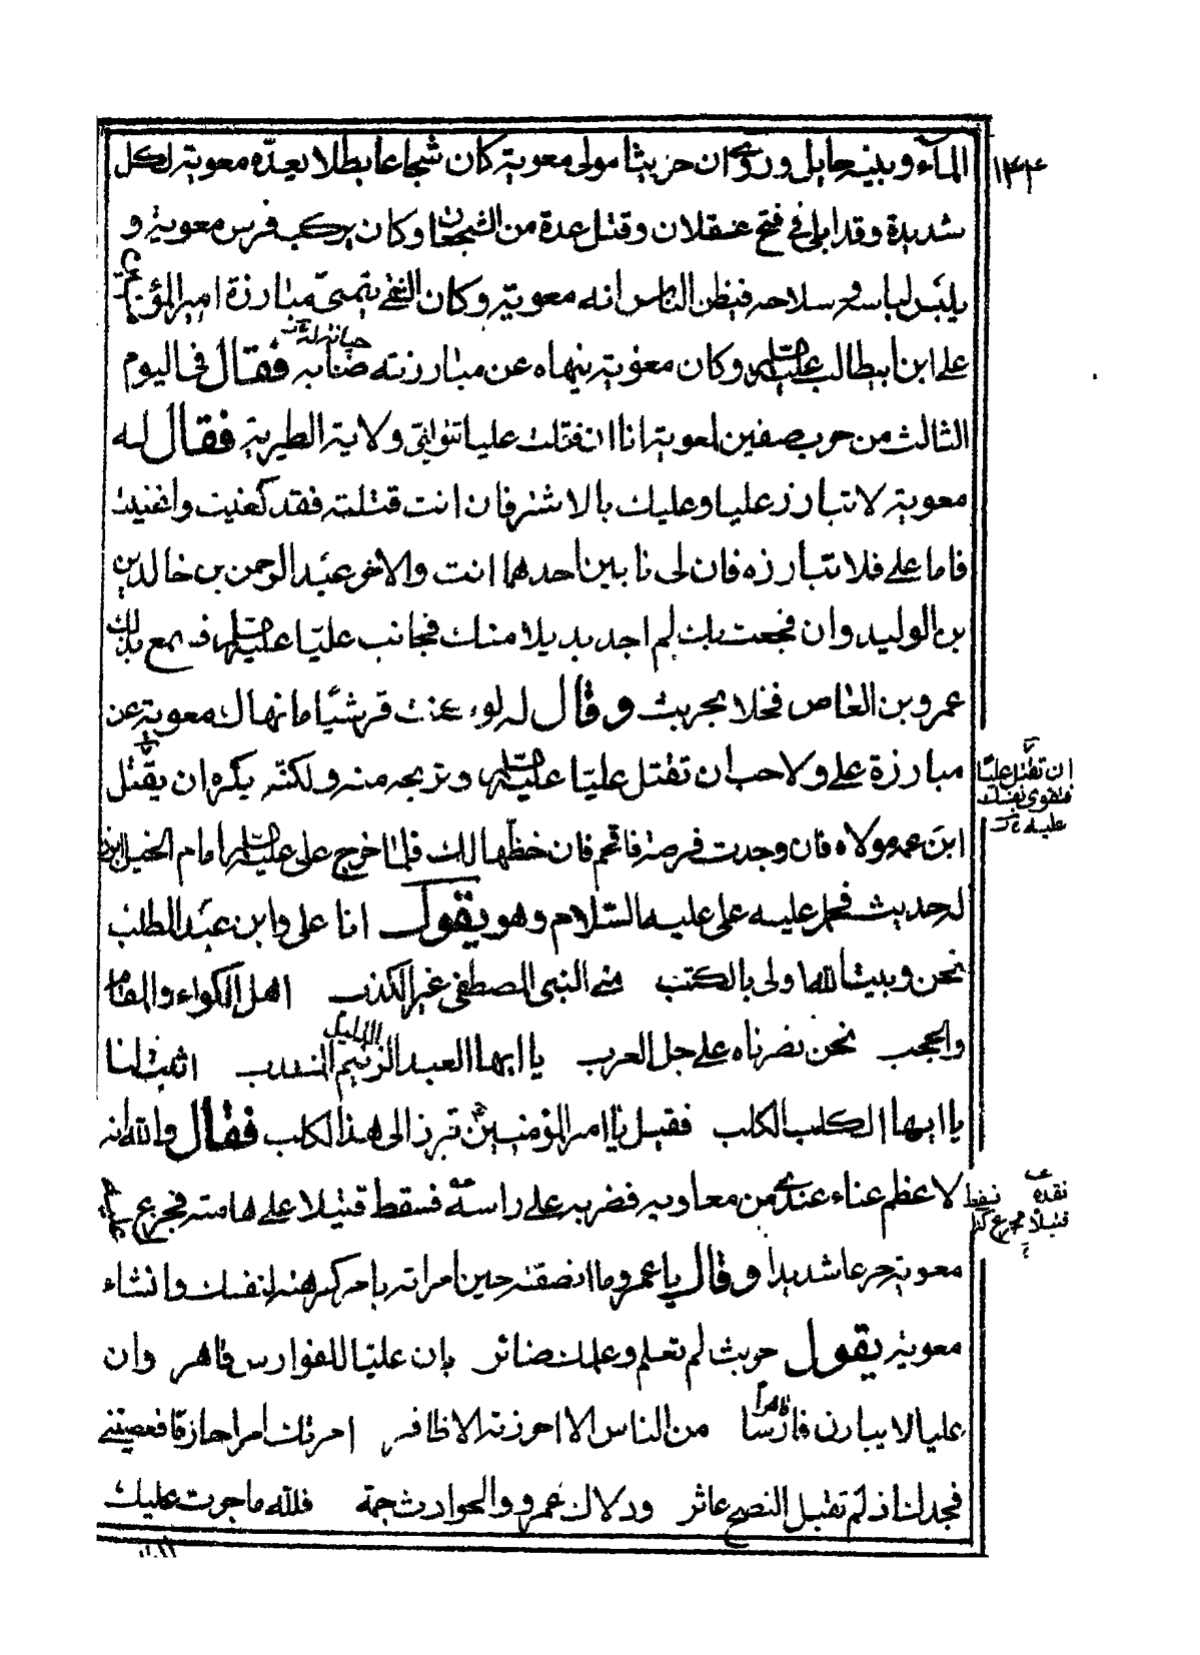 ١٤٤
المآء وبينه حايل وروى ان حريثا مولى معوية كان شجاعا بطلا يعدّه معوية لكل
شديدة وقد ابلى في فتح عسقلان وقتل عدة من الشجعان وكان يركب فرس معوية و
يلبس لباسه وسلاحه فيظن الناس انه معوية وكان يتمنى مبارزة امير المؤمنين
على ابن ابيطالب عليه السلم وكان معوية ينهاه عن مبارزته فقال فى اليوم
الثالث من حرب صفين لمعوية انا ان قتلت عليا ولاية الطبرية فقال له
معوية لا تبارز عليا وعليك بالاشتر فان انت قتلته فقد كفيت واغنيت
فاما على فلا تبارزه فان لى نابين احدهما انت والاخر عبد الرحمن بن خالد بن
بن الوليد وان فجعت بك لم اجد بديلا منك فجانب عليّا عليه السلم فسمع بذلك
عمرو بن العاص فخلا بحريث وقال له لو كنت قرشيّا ما نهاك معوية عن
مبارزة على ولاحب ان تقتل عليّا عليه السلم وتريحه منه ولكنه يكره ان يقتل
ان تقتل عليّا
عليه
ابن عمه مولاه فان وجدت فرصة فاقحم فان حظّها لك فلمّا خرج على عليه السلم امام الخيل
له حديث فحمل عليه على عليه السّلام وهو يقول انا على وابن عبد المطلب
نحن وبيت الله اولى بالكتب منّا النبى المصطفى غير الكذب اهل اللواء والمقام
والحجب نحن نصرناه على جل العرب يا ايها العبد المنتدب اثبت لنا
يا ايها الكلب الكلب فقيل يا امير المؤمنين تبرز الى هذا الكلب فقال والله انه
لاعظم عناء عندى من معاوية فضربه على راسه فسقط قتيلا على هامته فجزع
قتيلا فجزع
معوية جزعا شديدا وقال يا عمرو ما انصفته حين امرته بامر كرهته لنفسك وانشاء
معوية يقول حريث لم تعلم وعلمك ضائر بان عليّا للفوارس قاهر وان
عليا لا يبارزن فارسا من الناس الا احرزته الاظافر امرتك امرا حازما فعصيتنى
فجدك اذ لم تقبل النصح عاثر ودلاك عمرو والحوادث جمة فلله ما جرت عليك